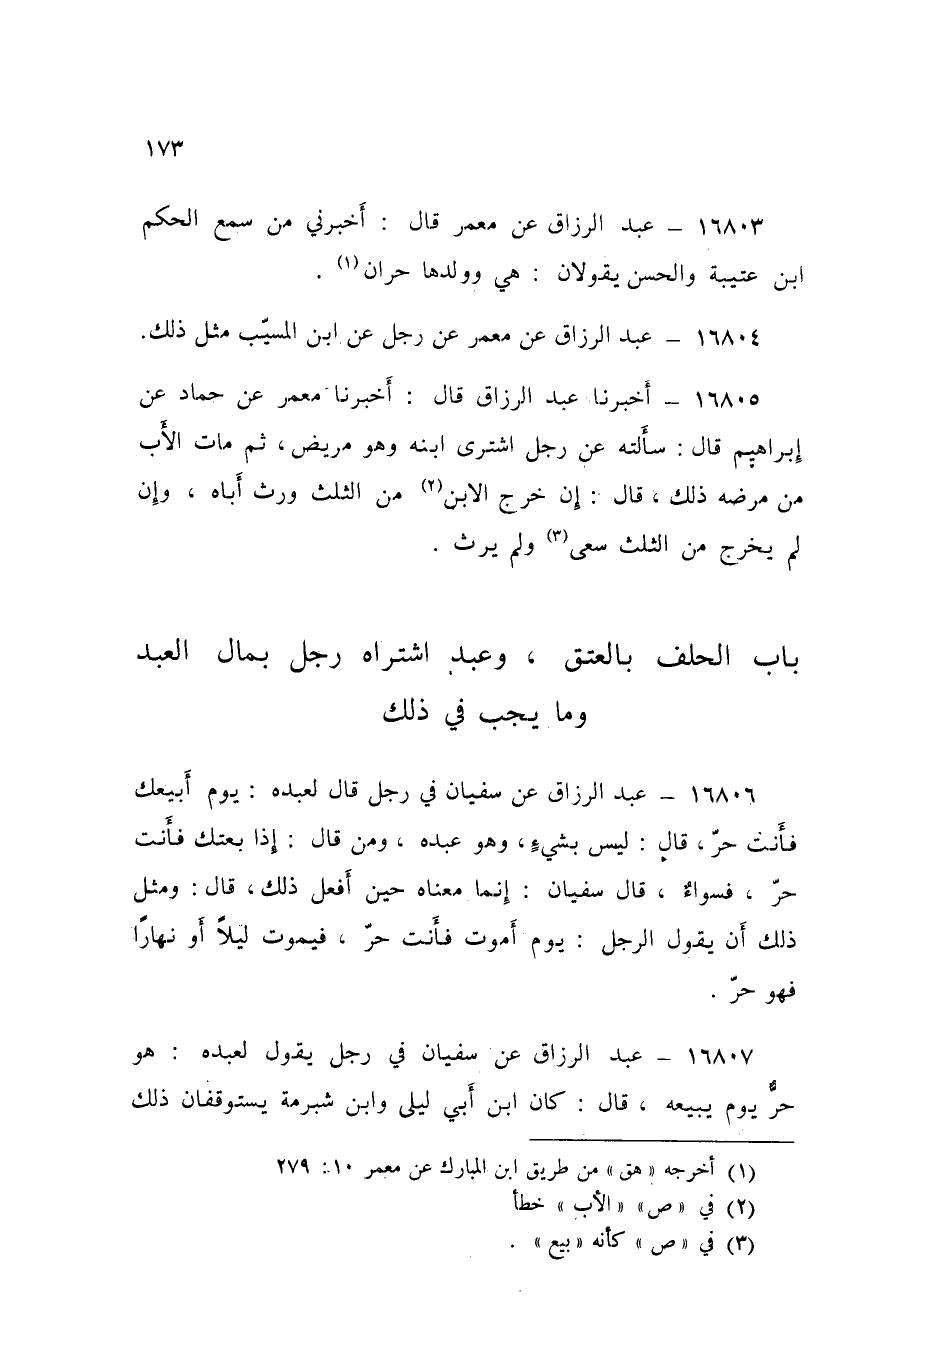 ١٧٣
١٦٨٠٣ – عبد الرزاق عن معمر قال : أَخبرني من سمع الحكم
ابن عتيبة والحسن يقولان : هي وولدها حران(١) .
١٦٨٠٤ – عبد الرزاق عن معمر عن رجل عن ابن المسيّب مثل ذلك.
١٦٨٠٥ – أَخبرنا عبد الرزاق قال : أَخبرنا معمر عن حماد عن
إبراهيم قال : سأَلته عن رجل اشترى ابنه وهو مريض ، ثم مات الأَب
من مرضه ذلك ، قال : إن خرج الابن(٢) من الثلث ورث أَباه ، وإن
لم يخرج من الثلث سعى(٣) ولم يرث .
باب الحلف بالعتق ، وعبد اشتراه رجل بمال العبد
وما يجب في ذلك
١٦٨٠٦ – عبد الرزاق عن سفيان في رجل قال لعبده : يوم أَبيعك
فأَنت حرّ ، قال : ليس بشيءٍ ، وهو عبده ، ومن قال : إذا بعتك فأَنت
حرّ ، فسواءٌ ، قال سفيان : إنما معناه حين أَفعل ذلك ، قال : ومثل
ذلك أَن يقول الرجل : يوم أَموت فأَنت حرّ ، فيموت ليلاً أَو نهارًا
فهو حرّ .
١٦٨٠٧ – عبد الرزاق عن سفيان في رجل يقول لعبده : هو
حرٌّ يوم يبيعه ، قال : كان ابن أَبي ليلى وابن شبرمة يستوقفان ذلك
(١) أخرجه « هق » من طريق ابن المبارك عن معمر ١٠: ٢٧٩
(٢) في « ص » « الأب » خطأ
(٣) في « ص » كأنه « بيع » .